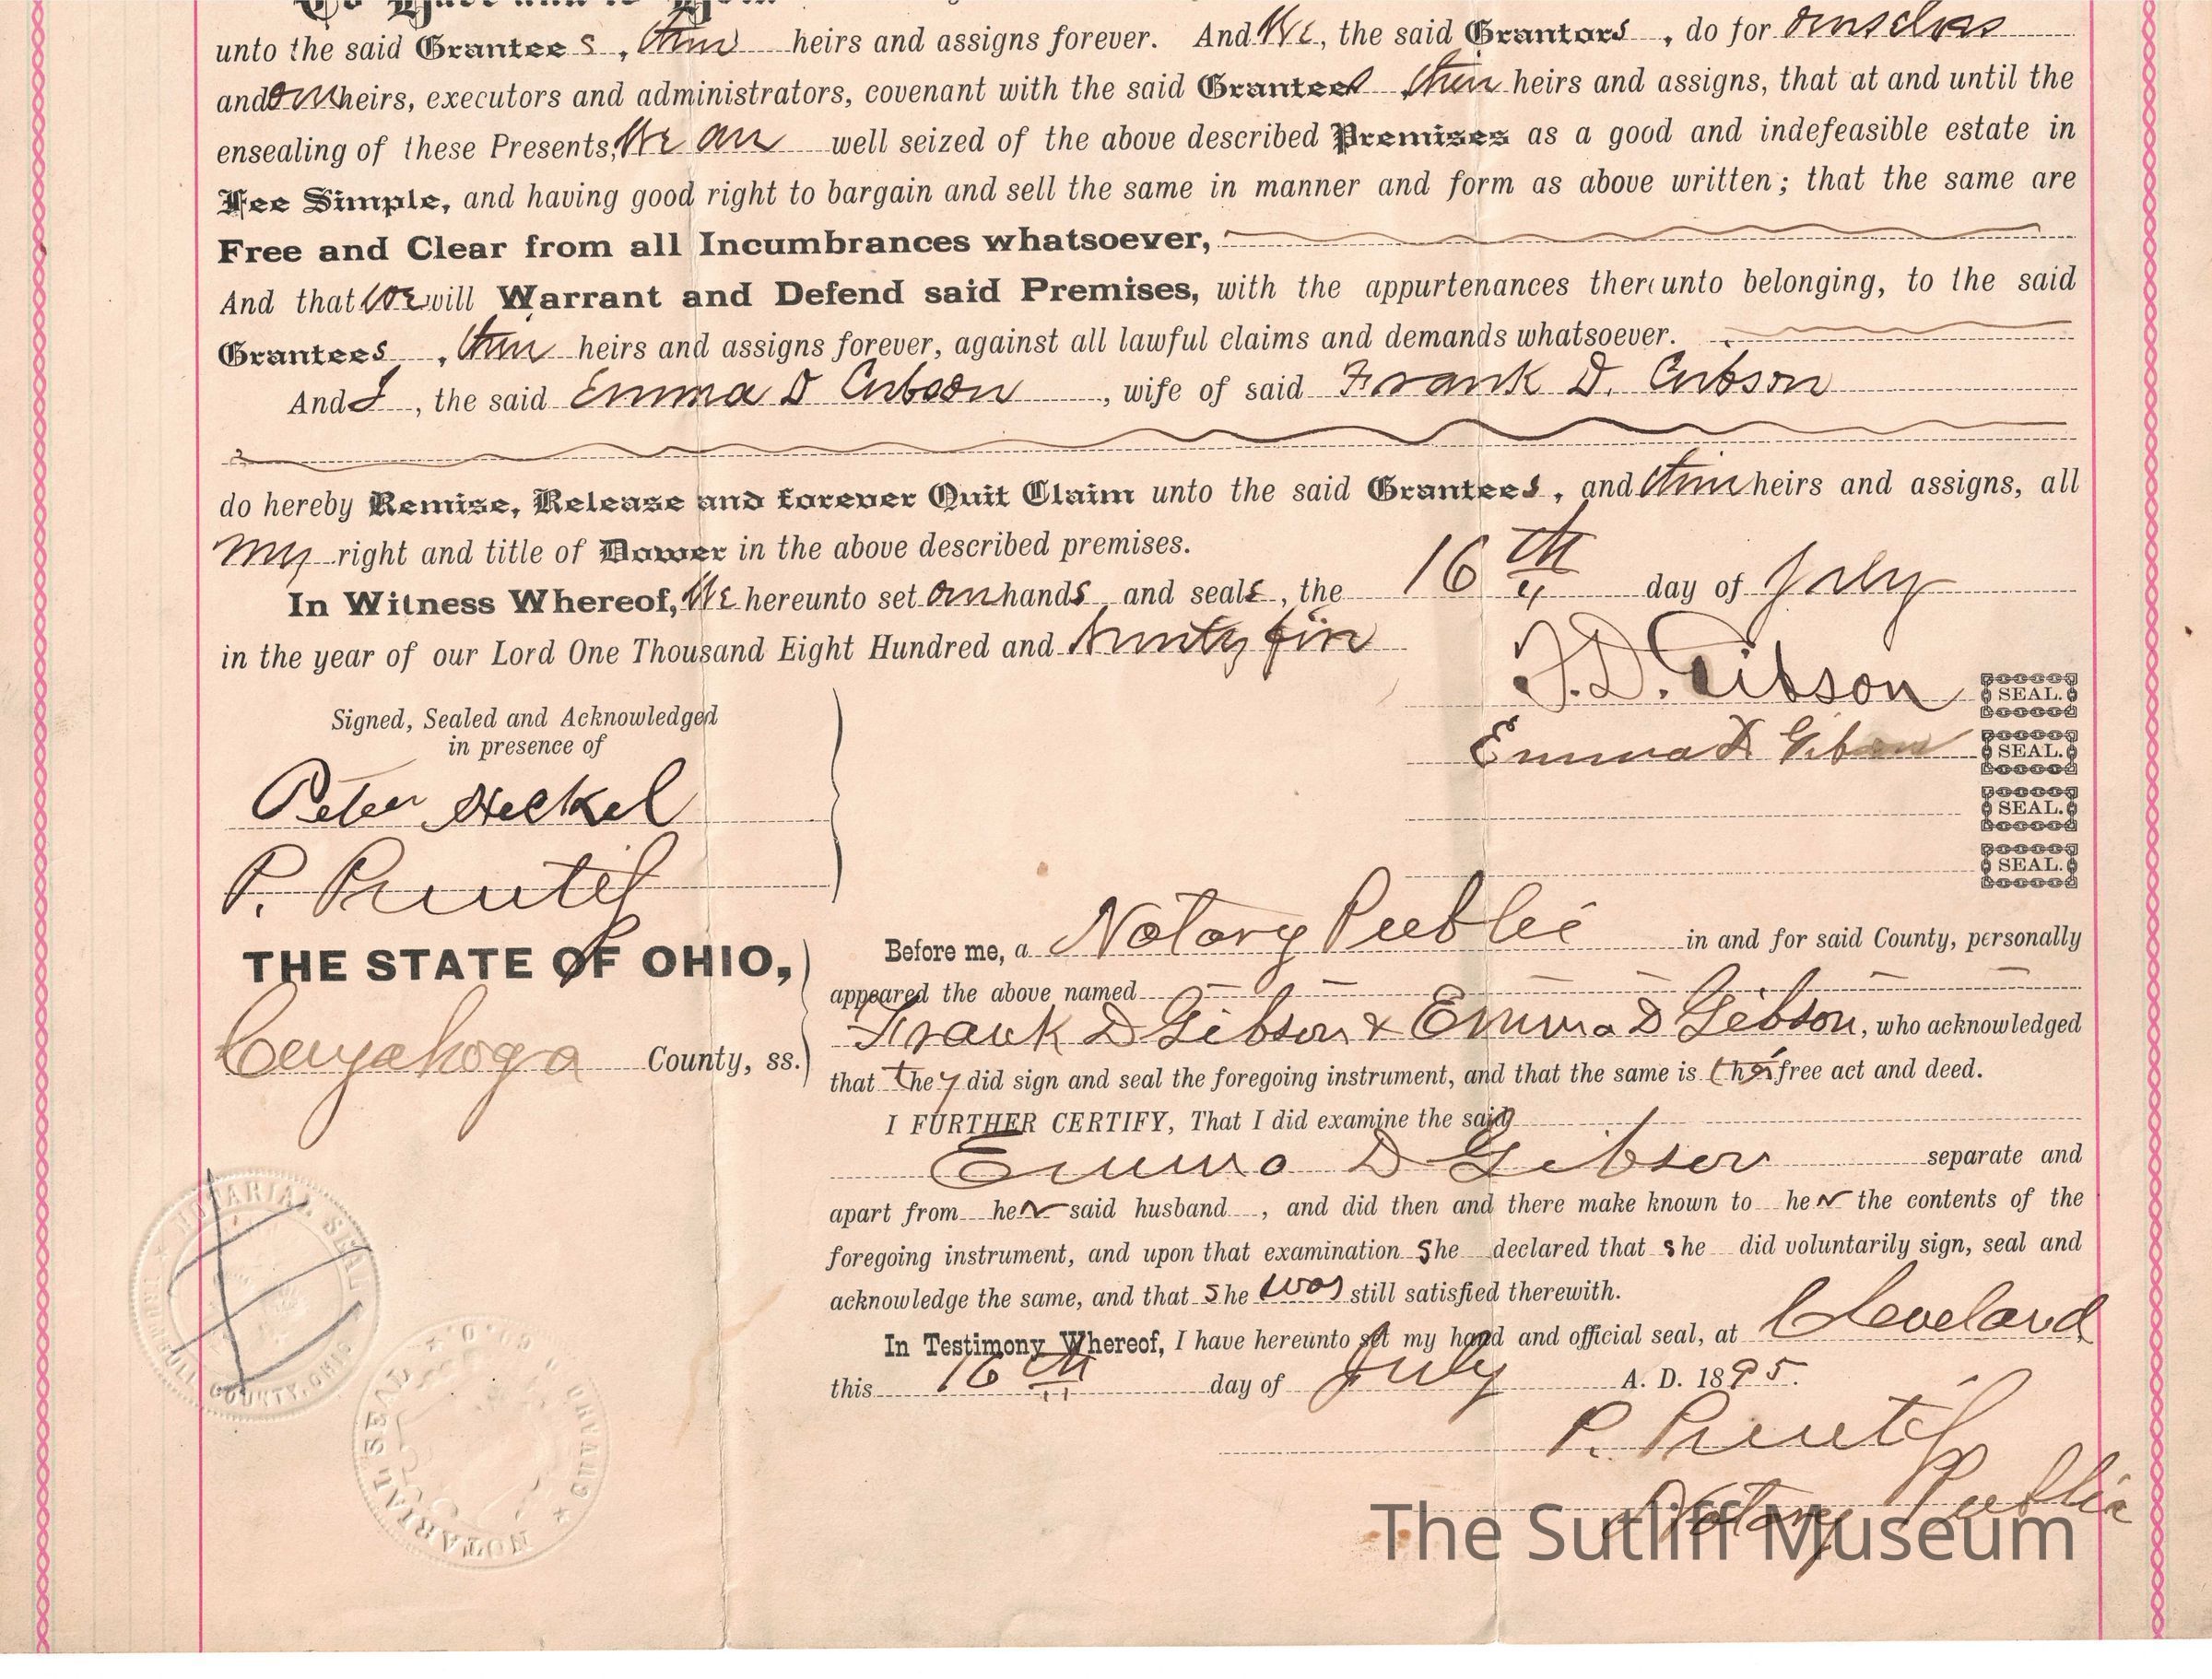 To Have and to Hold
unto the said Grantees, their heirs and assigns forever. And We, the said Grantors, do for ourselves
and our heirs, executors and administrators, covenant with the said Grantees their heirs and assigns, that at and until the
ensealing of these Presents, We are well seized of the above described Premises as a good and indefeasible estate in
Fee Simple, and having good right to bargain and sell the same in manner and form as above written; that the same are
Free and Clear from all Incumbrances whatsoever,
And that we will Warrant and Defend said Premises, with the appurtenances thereunto belonging, to the said
Grantees, their heirs and assigns forever, against all lawful claims and demands whatsoever.
And I, the said Emma D Gibson, wife of said Frank D. Gibson
do hereby Remise, Release and forever Quit Claim unto the said Grantees, and their heirs and assigns, all
my right and title of Dower in the above described premises.
In Witness Whereof, We hereunto set our hands and seals, the 16th day of July
in the year of our Lord One Thousand Eight Hundred and Ninety five
F.D. Gibson SEAL.
Emma D Gibson SEAL.
SEAL.
SEAL.
Signed, Sealed and Acknowledged
in presence of
Peter Heckel
P.
THE STATE OF OHIO,
Cuyahoga County, ss.
Before me, a Notary Public in and for said County, personally
appeared the above named
Frank D Gibson & Emma D Gibson, who acknowledged
that they did sign and seal the foregoing instrument, and that the same is their free act and deed.
I FURTHER CERTIFY, That I did examine the said
Emma D Gibson separate and
apart from her said husband, and did then and there make known to her the contents of the
foregoing instrument, and upon that examination she declared that she did voluntarily sign, seal and
acknowledge the same, and that she was still satisfied therewith.
In Testimony Whereof, I have hereunto set my hand and official seal, at Cleveland
this 16th day of July A. D. 1895.
P.
Notary Public
NOTARIAL SEAL
TRUMBULL COUNTY, OHIO
NOTARIAL SEAL
CUYAHO CO. O.
The Sutliff Museum